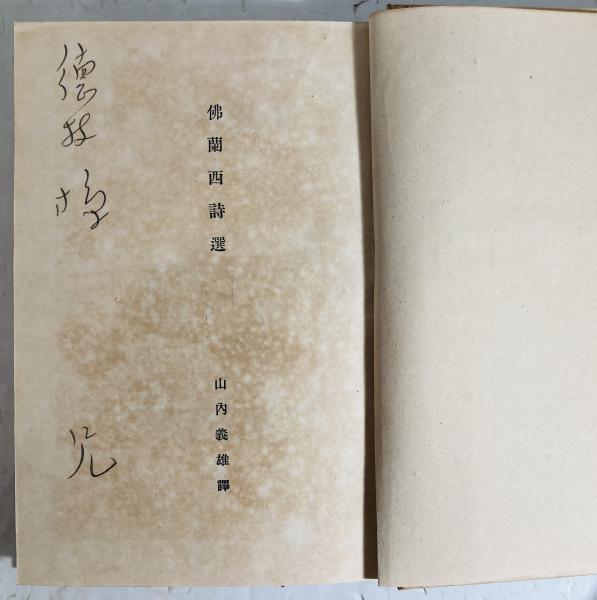 佛蘭西詩選
山內義雄譯
德
兄